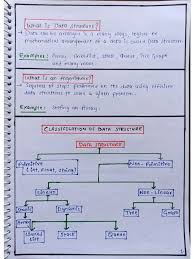 What is Data Structure?
Data can be arranged in many ways, logical or mathematical arrangement of data is called Data Structure.
Examples: Array, Linked list, Stack, Queue, Tree, Graph and many more.
What is an Algorithm?
Sequence of steps on the data using
data structures to solve a given problem.
Example: Sorting an Array.
CLASSIFICATION OF DATA STRUCTURE
Data Structure
Primitive Non-Primitive
(int, float, string)
Linear Non-Linear
Static Dynamic Tree Graph
Array
Stack Queue